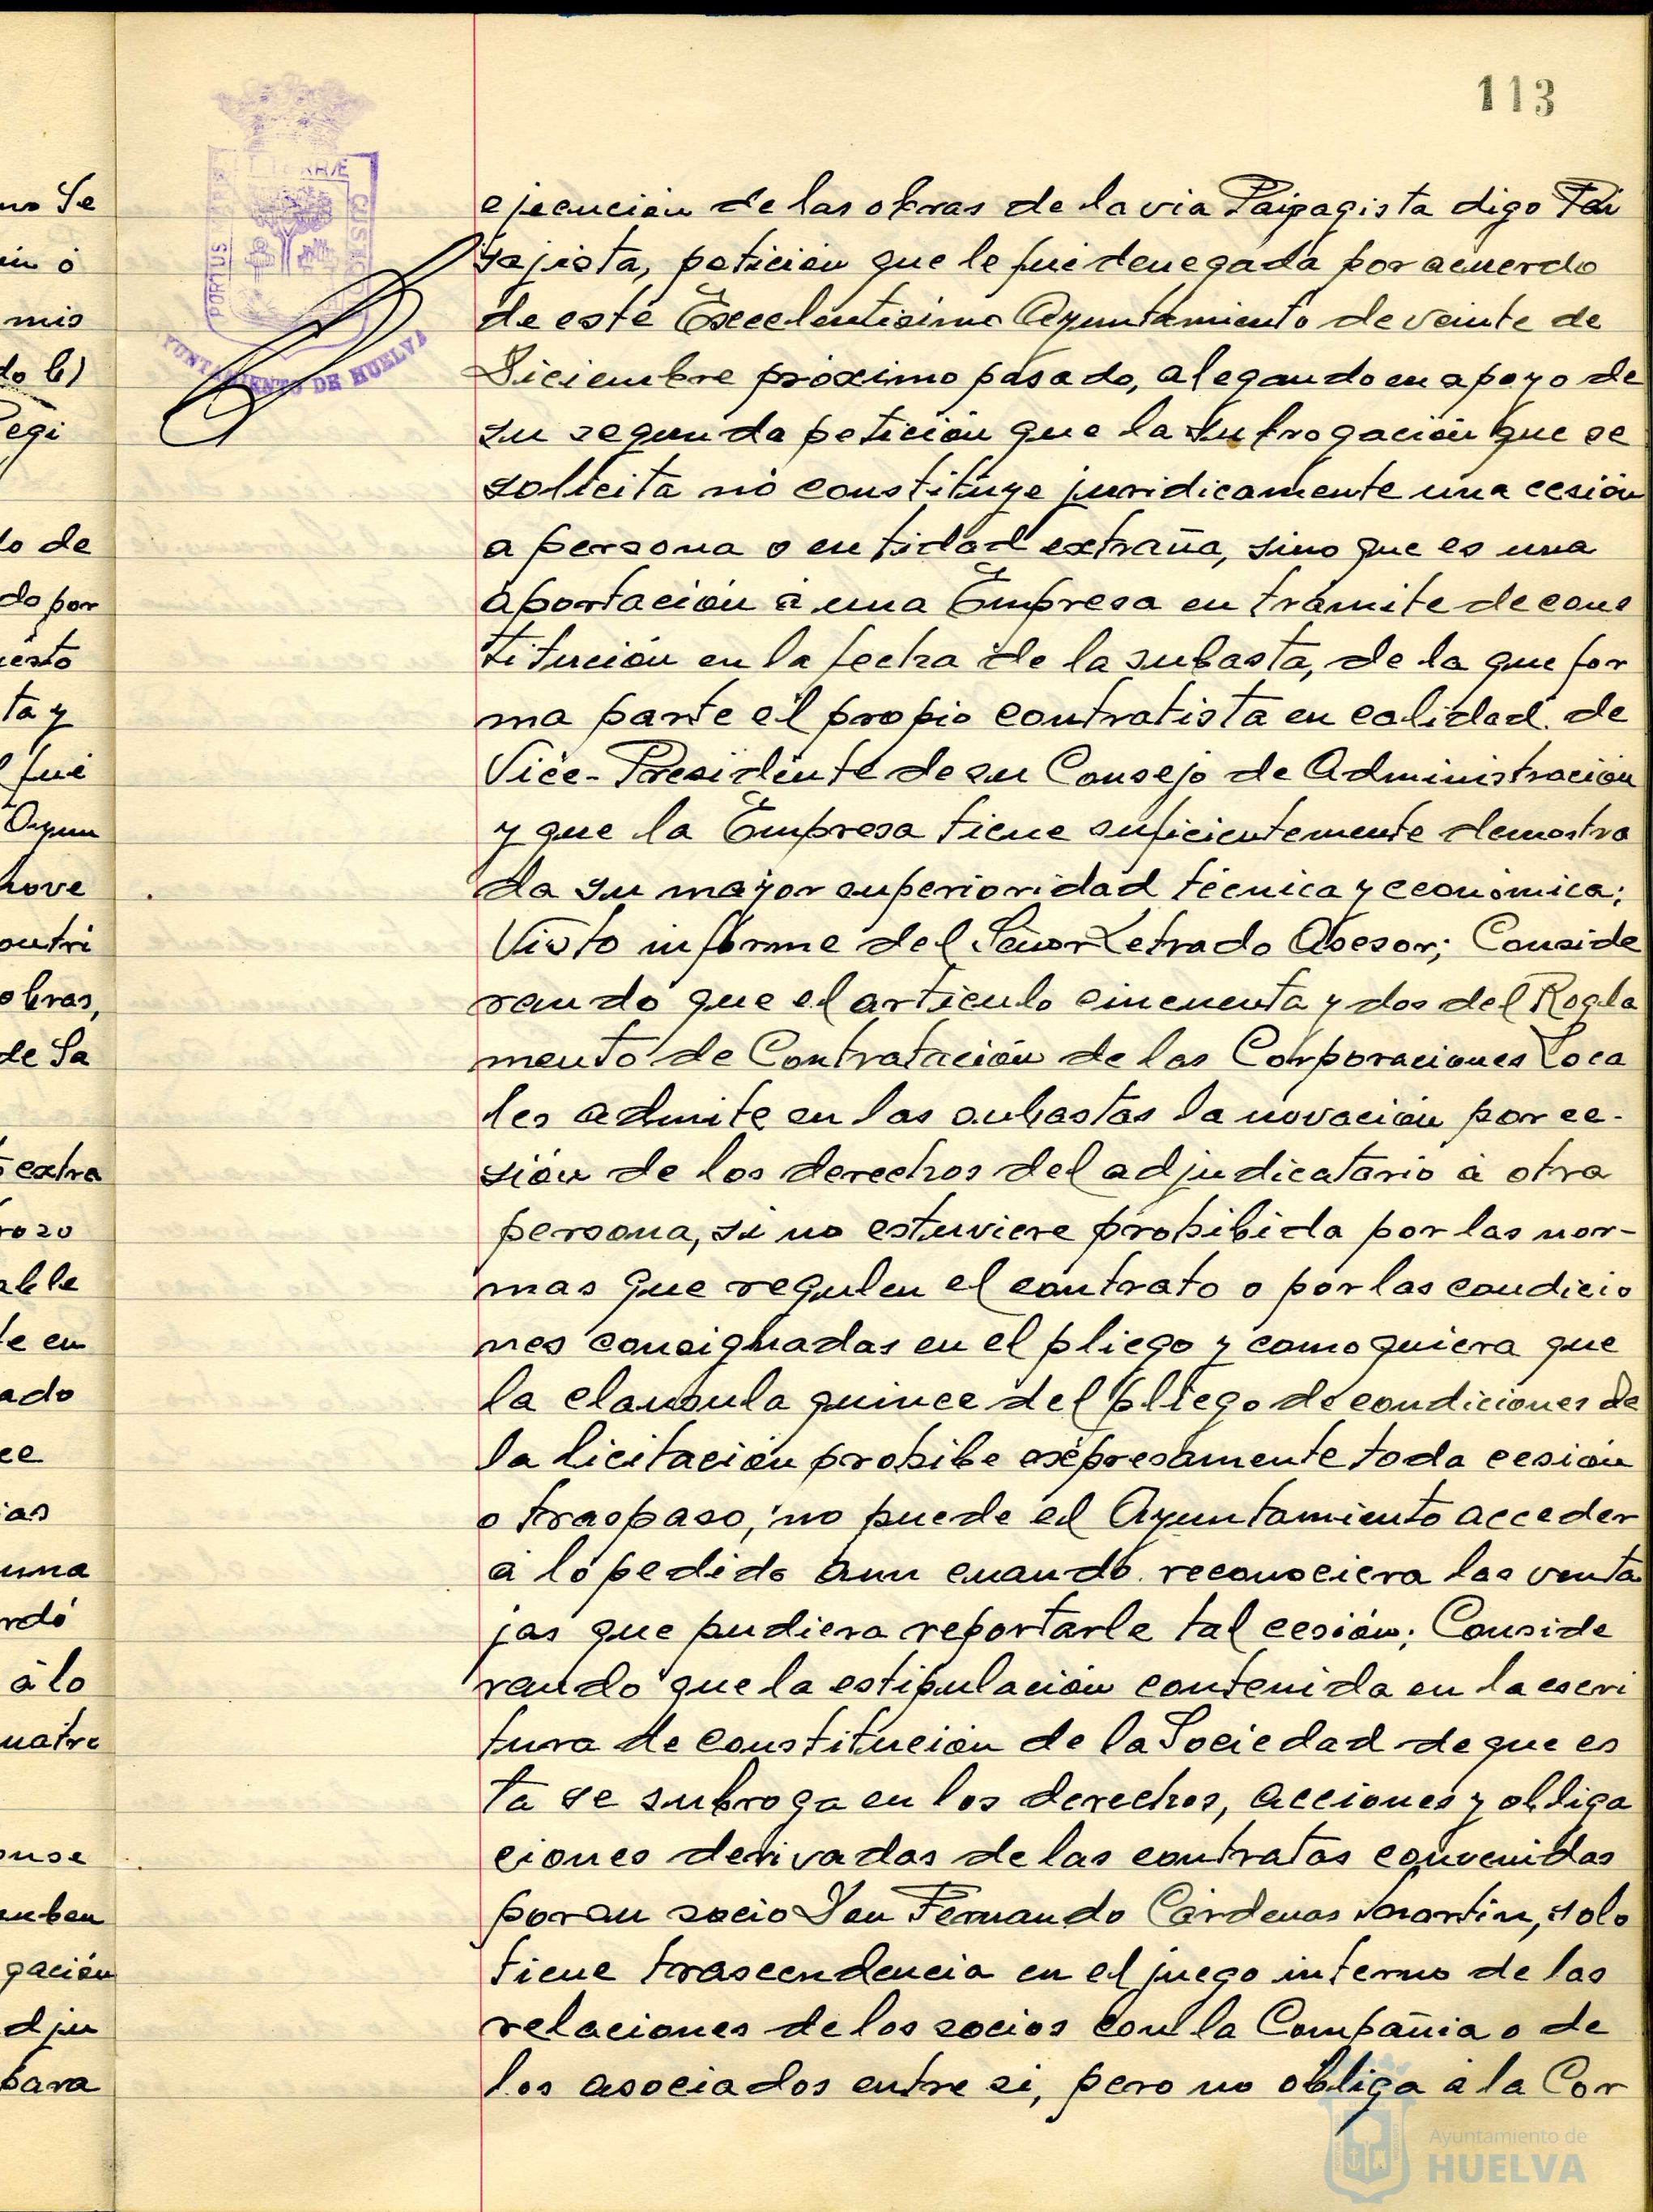 113
PORTUS MARIS ET TERRÆ CUSTODIA
AYUNTAMIENTO DE HUELVA
no Se
in ó
mis
do b)
Regi
lo de
do por
uesto
ta y
l fué
Ayun
nove
ontri
obras,
de Sa
extra
rozo
able
te en
ado
ce
ias
una
rdó
á lo
uatro
onse
enben
gación
dju
para
ejecución de las obras de la via Paipagista digo Pai
sajista, petición que le fué denegada por acuerdo
de este Excelentisimo Ayuntamiento de veinte de
Diciembre próximo pasado, alegando en apoyo de
su segunda petición que la subrogación que se
solicita no constituye juridicamente una cesión
a persona o entidad extraña, sino que es una
aportación á una Empresa en trámite de cons
titución en la fecha de la subasta, de la que for
ma parte el propio contratista en calidad de
Vice-Presidente de su Consejo de Administración
y que la Empresa tiene suficientemente demostra
da su mayor superioridad técnica y económica;
Visto informe del Señor Letrado Asesor; Conside
rando que el artículo cincuenta y dos del Regla
mento de Contratación de las Corporaciones Loca
les admite en las subastas la novación por ce-
sión de los derechos del adjudicatario á otra
persona, si no estuviere prohibida por las nor-
mas que regulen el contrato o por las condicio
nes consignadas en el pliego y como quiera que
la clausula quince del pliego de condiciones de
la licitación prohibe expresamente toda cesión
o traspaso, no puede el Ayuntamiento acceder
a lo pedido aun cuando reconociera las venta
jas que pudiera reportarle tal cesión; Conside
rando que la estipulación contenida en la escri
tura de constitución de la Sociedad de que es
ta se subroga en los derechos, acciones y obliga
ciones derivadas de las contratas convenidas
por su socio Don Fernando Cárdenas Martin, solo
tiene trascendencia en el juego interno de las
relaciones de los socios con la Compañia o de
los asociados entre si, pero no obliga á la Cor
Ayuntamiento de
HUELVA